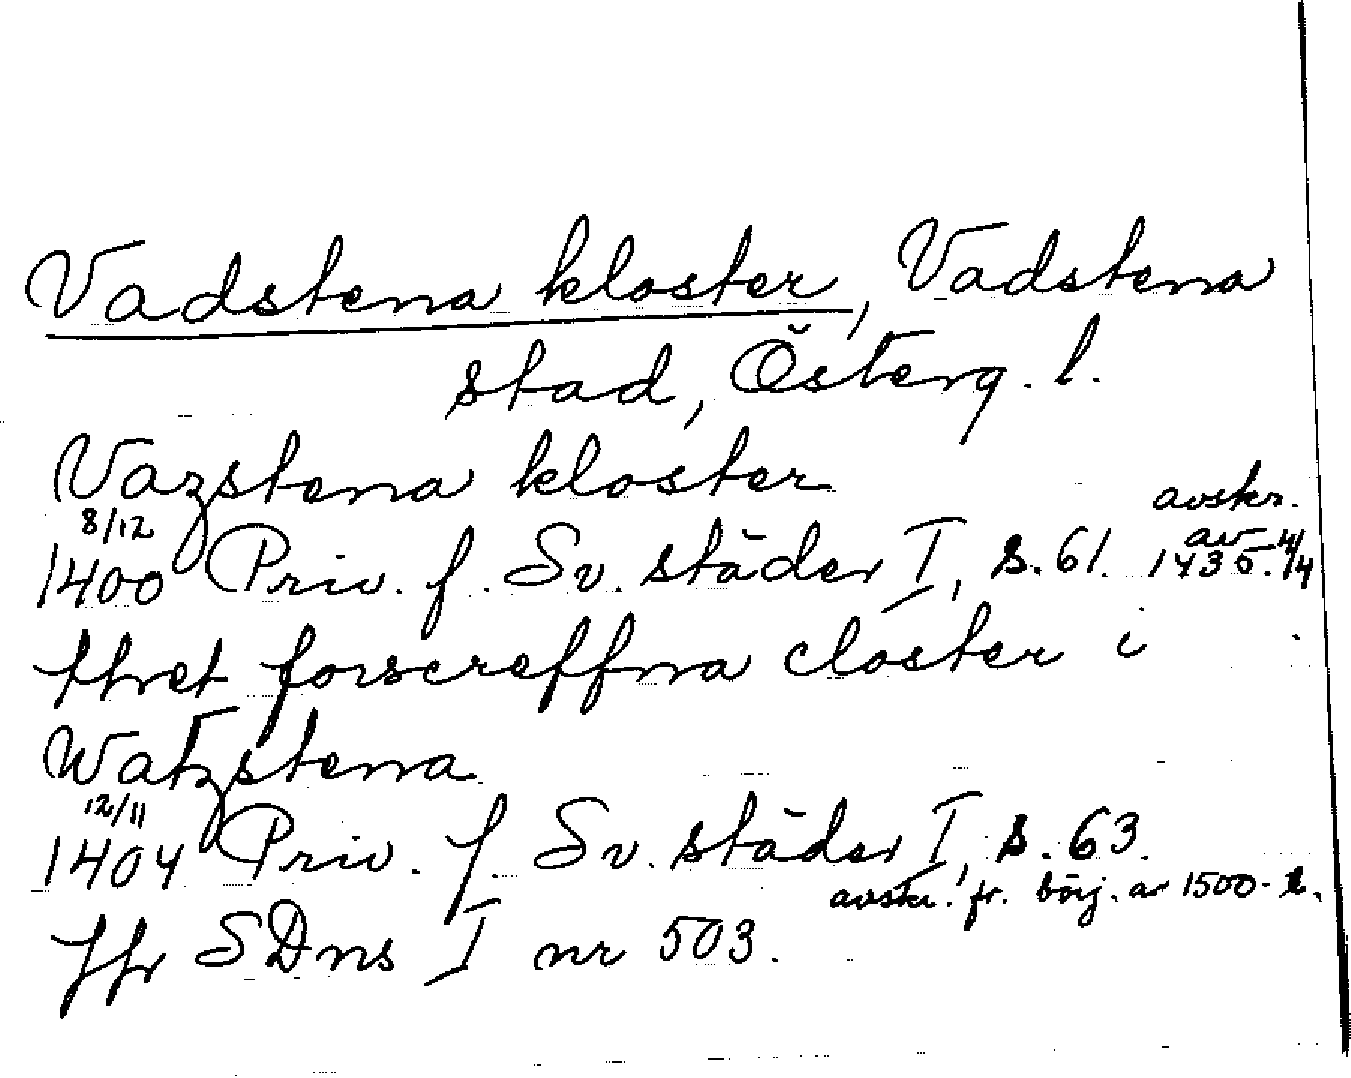 Vadstena kloster, Vadstena
stad, Österg. l.
Vazstena kloster
8/12 avskr.
1400 Priv. f. Sv. städer I, s. 61. av 4/4 1435.
thet forscreffna closter i
Watzstena
12/11
1404 Priv. f. Sv. städer I, s. 63.
avskr. fr. börj. av 1500-t.
Jfr SDns I nr 503.